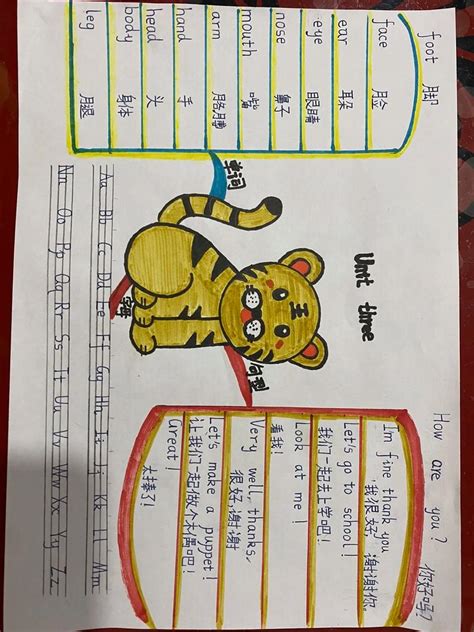 Unit three
单词
foot 脚
face 脸
ear 耳朵
eye 眼睛
nose 鼻子
mouth 嘴
arm 胳膊
hand 手
head 头
body 身体
leg 腿
王
句型
How are you? 你好吗?
I'm fine thank you
我很好,谢谢你.
Let's go to school!
我们一起去上学吧!
Look at me!
看我!
Very well, thanks.
很好,谢谢
Let's make a puppet!
让我们一起做个木偶吧!
Great!
太棒了!
字母
Aa Bb Cc Dd Ee Ff Gg Hh Ii Jj Kk Ll Mm
Nn Oo Pp Qq Rr Ss Tt Uu Vv Ww Xx Yy Zz